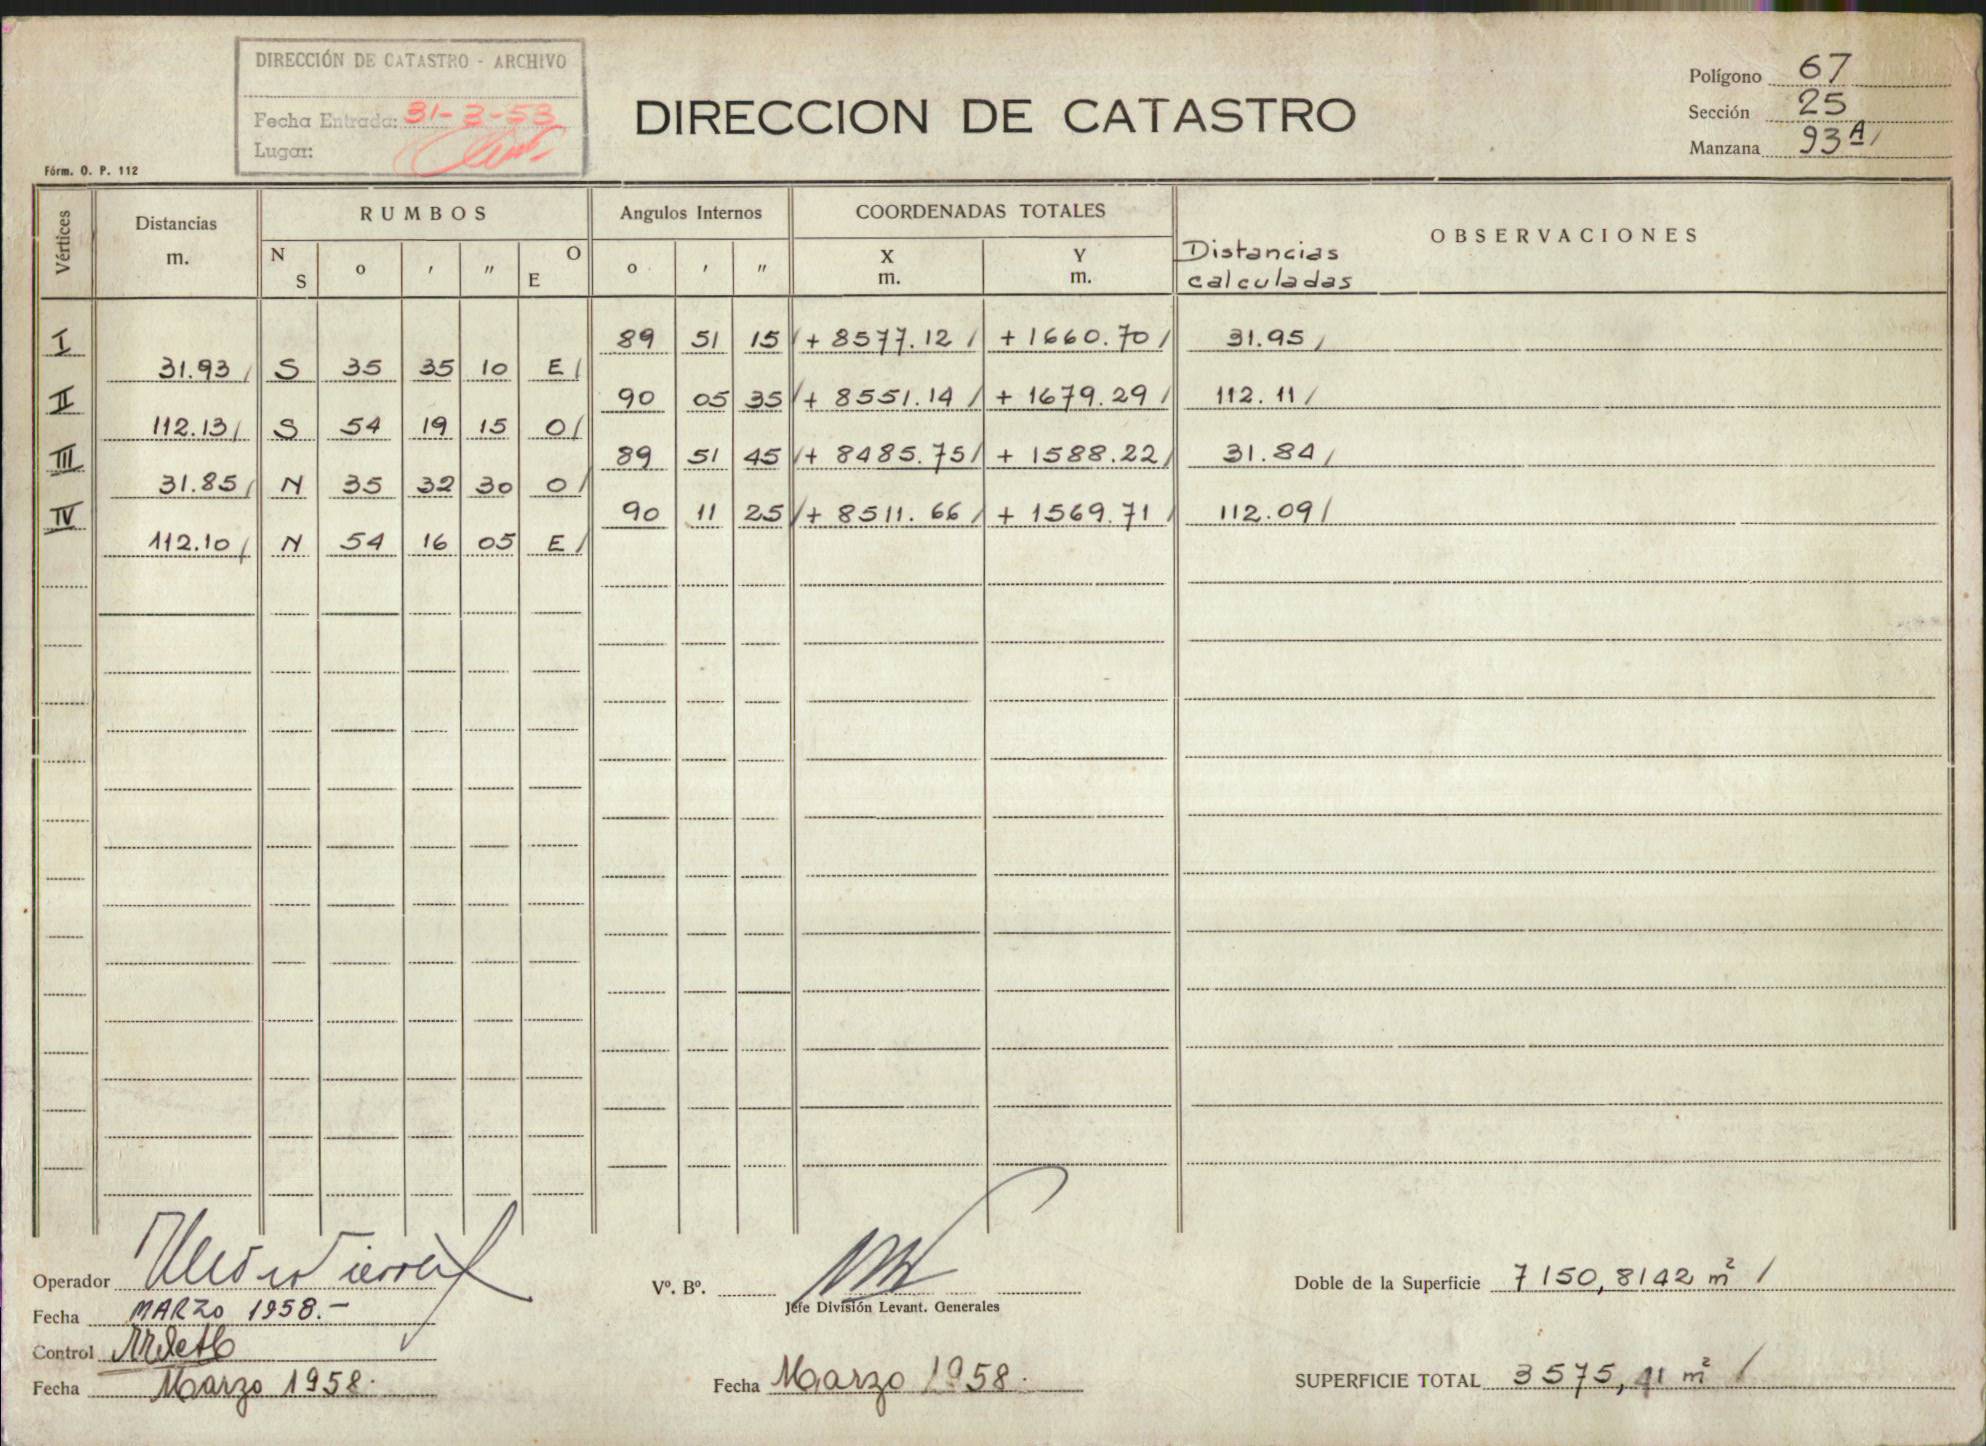 DIRECCIÓN DE CATASTRO - ARCHIVO
Fecha Entrada: 31-3-58
Lugar:
Fórm. O. P. 112
DIRECCION DE CATASTRO
Polígono 67
Sección 25
Manzana 93A/
Vértices Distancias m. RUMBOS Angulos Internos COORDENADAS TOTALES OBSERVACIONES
N S o ' " O E o ' " X m. Y m. Distancias calculadas
I 89 51 15/ + 8577.12/ + 1660.70/ 31.95/
31.93/ S 35 35 10 E/
II 90 05 35/ + 8551.14/ + 1679.29/ 112.11/
112.13/ S 54 19 15 O/
III 89 51 45/ + 8485.75/ + 1588.22/ 31.84/
31.85/ N 35 32 30 O/
IV 90 11 25/ + 8511.66/ + 1569.71/ 112.09/
112.10/ N 54 16 05 E/
Operador
Fecha MARZO 1958.-
Control
Fecha Marzo 1958.
Vº. Bº.
Jefe División Levant. Generales
Fecha Marzo 1958.
Doble de la Superficie 7150,8142 m² /
SUPERFICIE TOTAL 3575,41 m² /